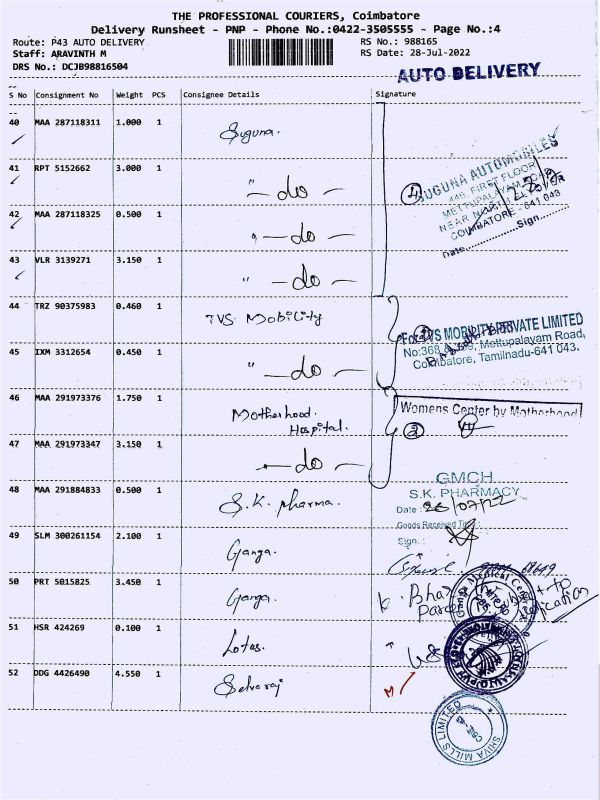 THE PROFESSIONAL COURIERS, Coimbatore
Delivery Runsheet - PNP - Phone No.:0422-3505555 - Page No.:4
Route: P43 AUTO DELIVERY
RS No.: 988165
Staff: ARAVINTH M
RS Date: 28-Jul-2022
DRS No.: DCJB98816504
AUTO DELIVERY
S No Consignment No Weight PCS Consignee Details Signature
40 MAA 287118311 1.000 1 Suguna.
41 RPT 5152662 3.000 1 " — do —
42 MAA 287118325 0.500 1 " — do —
43 VLR 3139271 3.150 1 " — do —
④
SUGUNA AUTOMOBILES
446, FIRST FLOOR
METTUPALAYAM ROAD
COIMBATORE - 641 043
Date. Sign.
44 TRZ 90375983 0.460 1 TVS Mobility
45 IXM 3312654 0.450 1 " — do —
For TVS MOBILITY PRIVATE LIMITED
Mettupalayam Road,
Coimbatore, Tamilnadu-641 043.
46 MAA 291973376 1.750 1 Motherhood. Hospital.
47 MAA 291973347 3.150 1 — do —
Womens Center by Motherhood
②
48 MAA 291884833 0.500 1 S.K. pharma.
GMCH
S.K. PHARMACY
Date :
Goods Received
Sign. :
49 SLM 300261154 2.100 1 Ganga.
50 PRT 5015825 3.450 1 Ganga.
Ganga Medical
51 HSR 424269 0.100 1 Lotus.
52 DDG 4426490 4.550 1 Selvaraj
SHIVA MILLS LIMITED